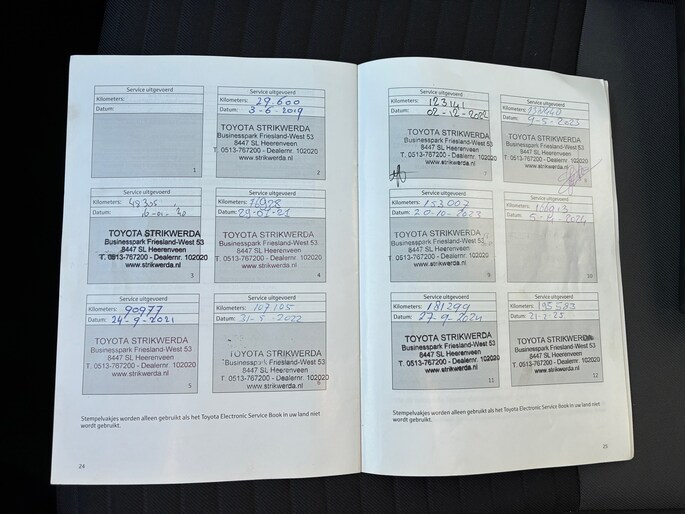 Service uitgevoerd
Kilometers:
Datum:
1
Service uitgevoerd
Kilometers: 29.600
Datum: 3-6-2019
TOYOTA STRIKWERDA
Businesspark Friesland-West 53
8447 SL Heerenveen
T. 0513-767200 - Dealernr. 102020
www.strikwerda.nl
2
Service uitgevoerd
Kilometers: 48305
Datum:
TOYOTA STRIKWERDA
Businesspark Friesland-West 53
8447 SL Heerenveen
T. 0513-767200 - Dealernr. 102020
www.strikwerda.nl
3
Service uitgevoerd
Kilometers:
Datum: 29-01-21
TOYOTA STRIKWERDA
Businesspark Friesland-West 53
8447 SL Heerenveen
T. 0513-767200 - Dealernr. 102020
www.strikwerda.nl
4
Service uitgevoerd
Kilometers: 90977
Datum: 24-9-2021
TOYOTA STRIKWERDA
Businesspark Friesland-West 53
8447 SL Heerenveen
T. 0513-767200 - Dealernr. 102020
www.strikwerda.nl
5
Service uitgevoerd
Kilometers: 107105
Datum: 31-5-2022
TOYOTA STRIKWERDA
Businesspark Friesland-West 53
8447 SL Heerenveen
T. 0513-767200 - Dealernr. 102020
www.strikwerda.nl
6
Stempelvakjes worden alleen gebruikt als het Toyota Electronic Service Book in uw land niet
wordt gebruikt.
24
Service uitgevoerd
Kilometers: 123141
Datum: 02-12-2022
TOYOTA STRIKWERDA
Businesspark Friesland-West 53
8447 SL Heerenveen
T. 0513-767200 - Dealernr. 102020
www.strikwerda.nl
7
Service uitgevoerd
Kilometers:
Datum: 9-5-2023
TOYOTA STRIKWERDA
Businesspark Friesland-West 53
8447 SL Heerenveen
T. 0513-767200 - Dealernr. 102020
www.strikwerda.nl
Service uitgevoerd
Kilometers: 153007
Datum: 20-10-2023
TOYOTA STRIKWERDA
Businesspark Friesland-West 53
8447 SL Heerenveen
T. 0513-767200 - Dealernr. 102020
www.strikwerda.nl
9
Service uitgevoerd
Kilometers:
Datum:
10
Service uitgevoerd
Kilometers: 181299
Datum: 27-9-2024
TOYOTA STRIKWERDA
Businesspark Friesland-West 53
8447 SL Heerenveen
T. 0513-767200 - Dealernr. 102020
www.strikwerda.nl
11
Service uitgevoerd
Kilometers: 195583
Datum:
TOYOTA STRIKWERDA
Businesspark Friesland-West 53
8447 SL Heerenveen
T. 0513-767200 - Dealernr. 102020
www.strikwerda.nl
12
Stempelvakjes worden alleen gebruikt als het Toyota Electronic Service Book in uw land niet
wordt gebruikt.
25